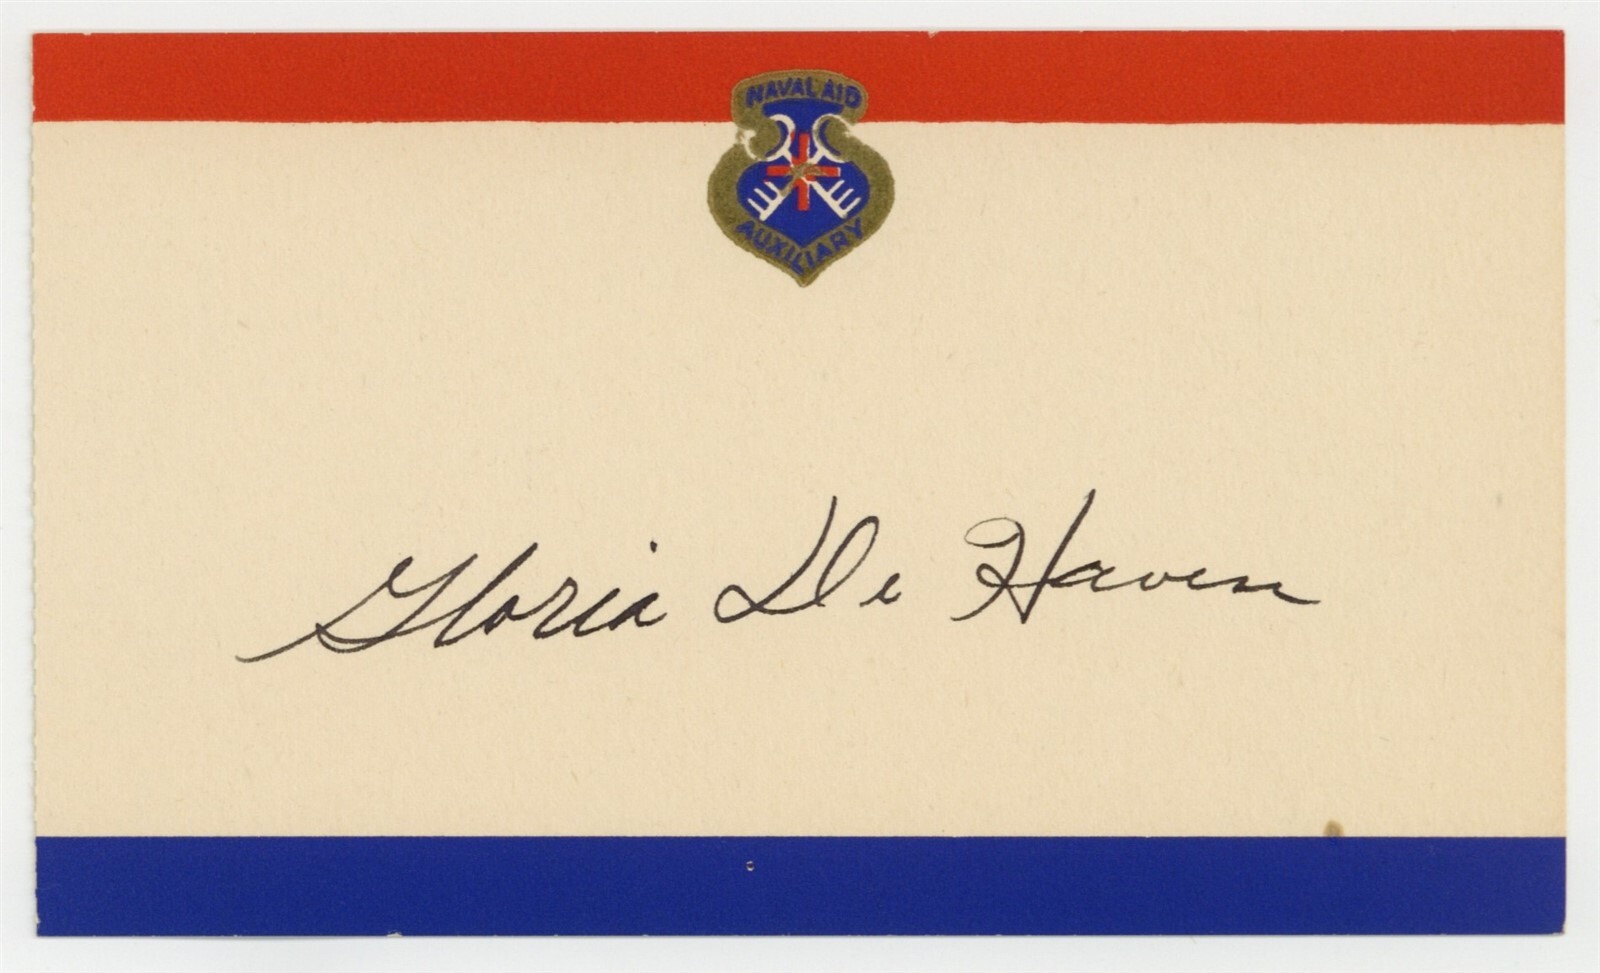 NAVAL AID
AUXILIARY
Gloria De Haven